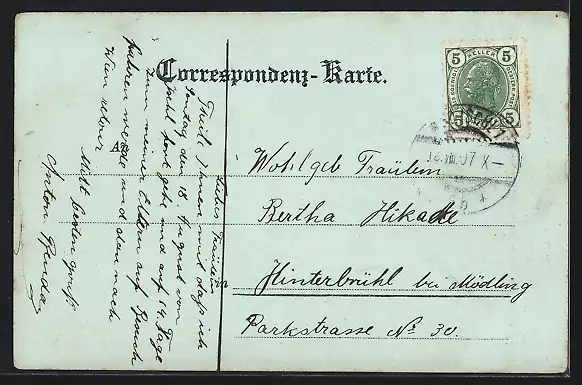 Correspondenz-Karte.
5 HELLER 5
5 5
18.VIII.07 X—
An
Wohlgeb Fräulein
Bertha Hikade
in
Hinterbrühl bei Mödling
Parkstrasse No 30.
Liebes Fräulein
Theile Ihnen mit daß ich
Sontag den 18. August von
fort gehe und auf 14 Tage
zum meiner Eltern auf Besuch
fahren werde und dan nach
Wien retour
Mitt besten gruß
Anton